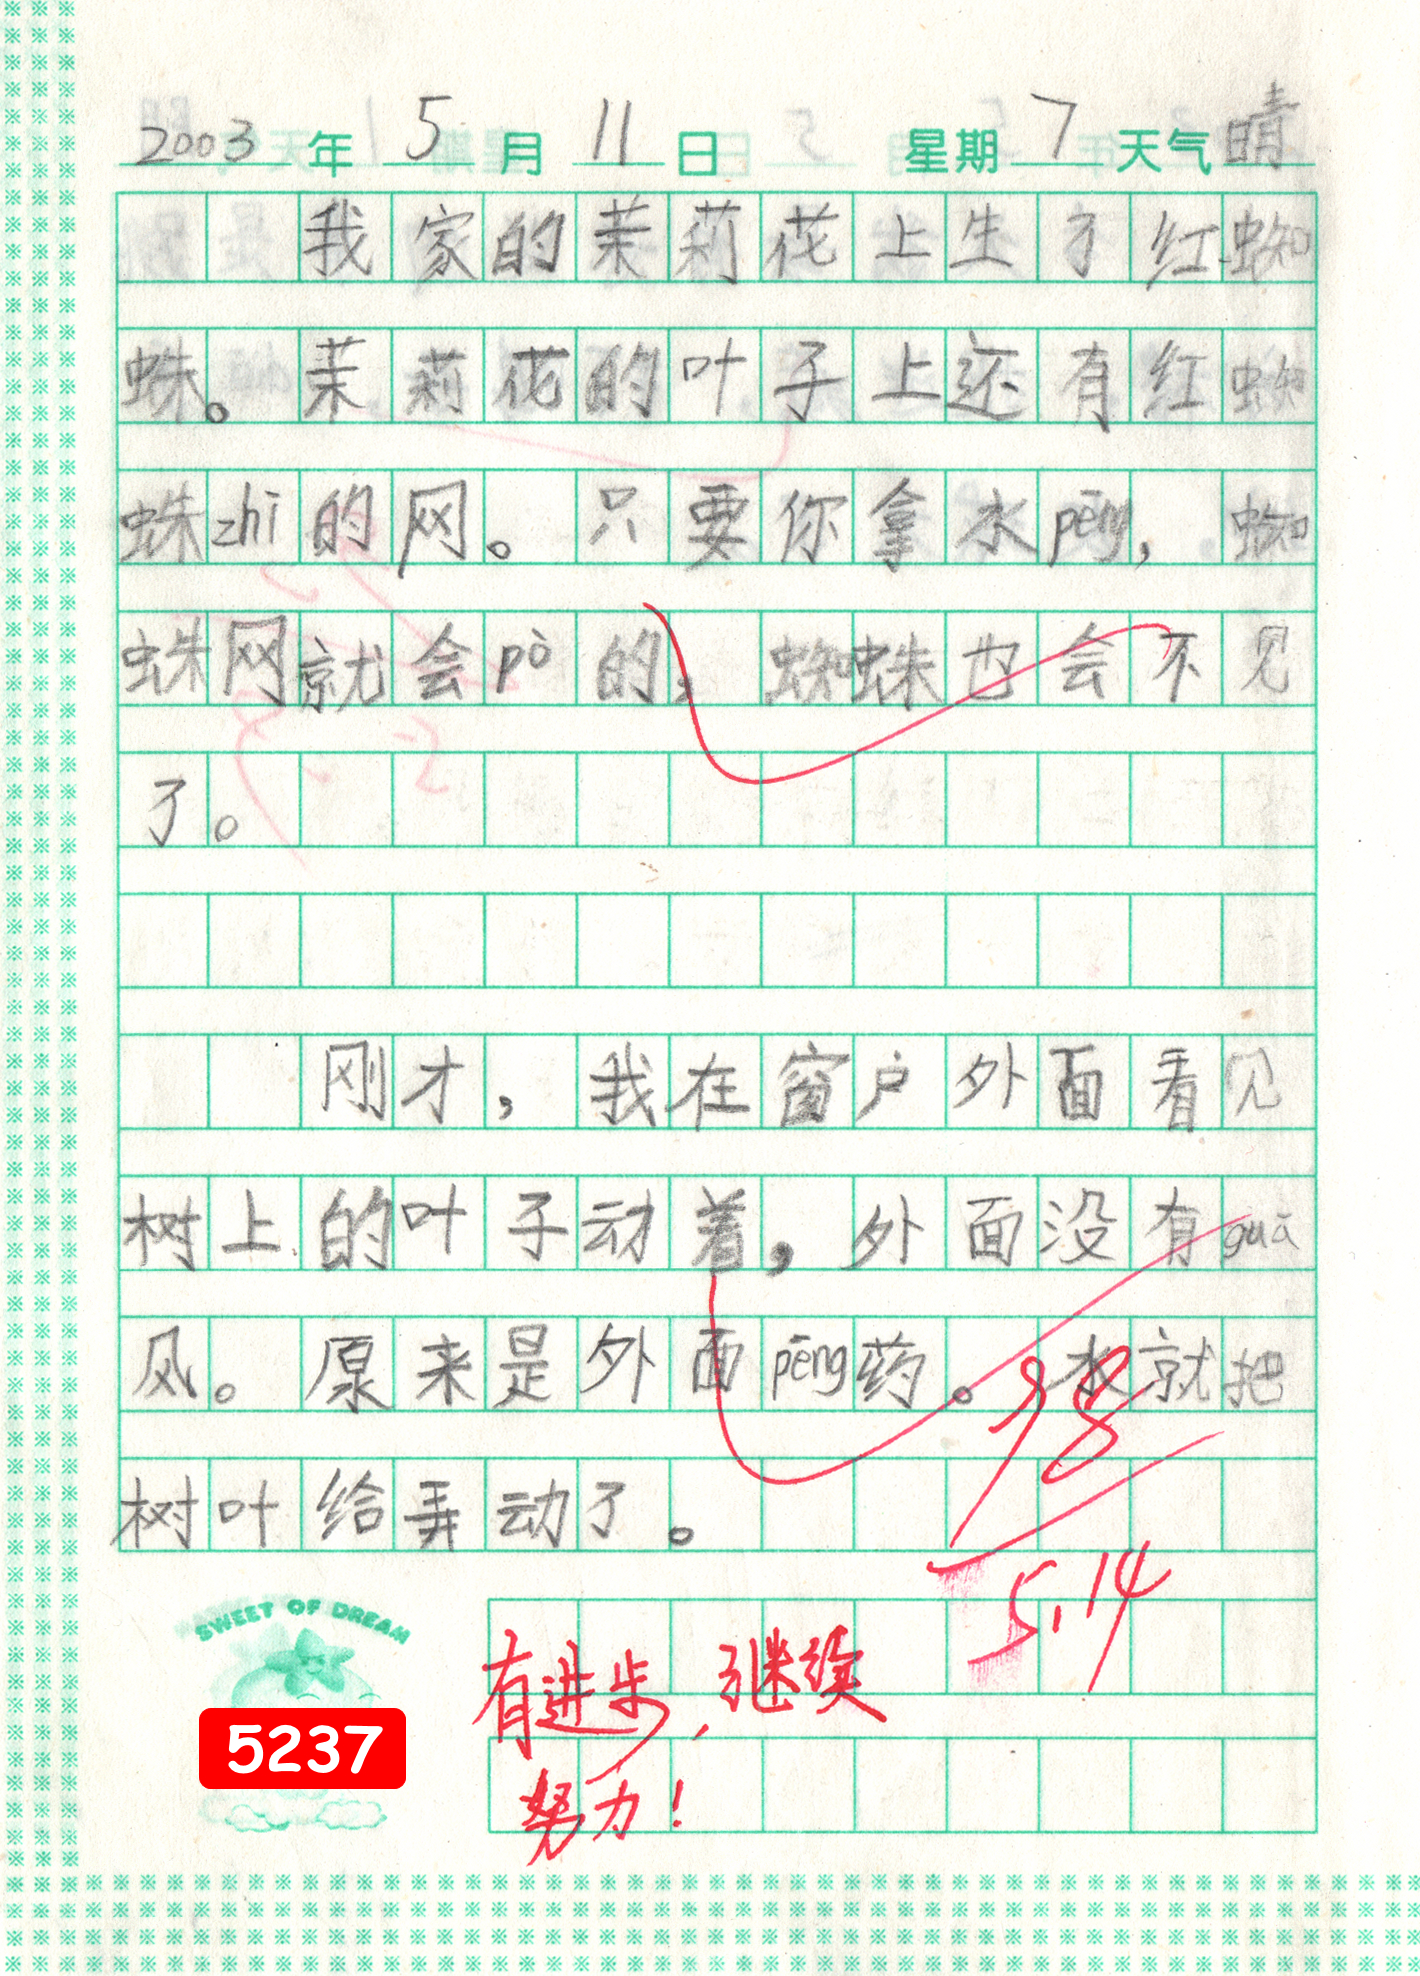 2003年5月11日 星期7天气晴
我家的茉莉花上生了红蜘
蛛。茉莉花的叶子上还有红蜘
蛛zhī的网。只要你拿水pēng,蜘
蛛网就会pò的,蜘蛛也会不见
了。
刚才,我在窗户外面看见
树上的叶子动着,外面没有guā
风。原来是外面pēng药。水就把
树叶给弄动了。
98
5.14
SWEET OF DREAM
有进步,继续
努力!
5237